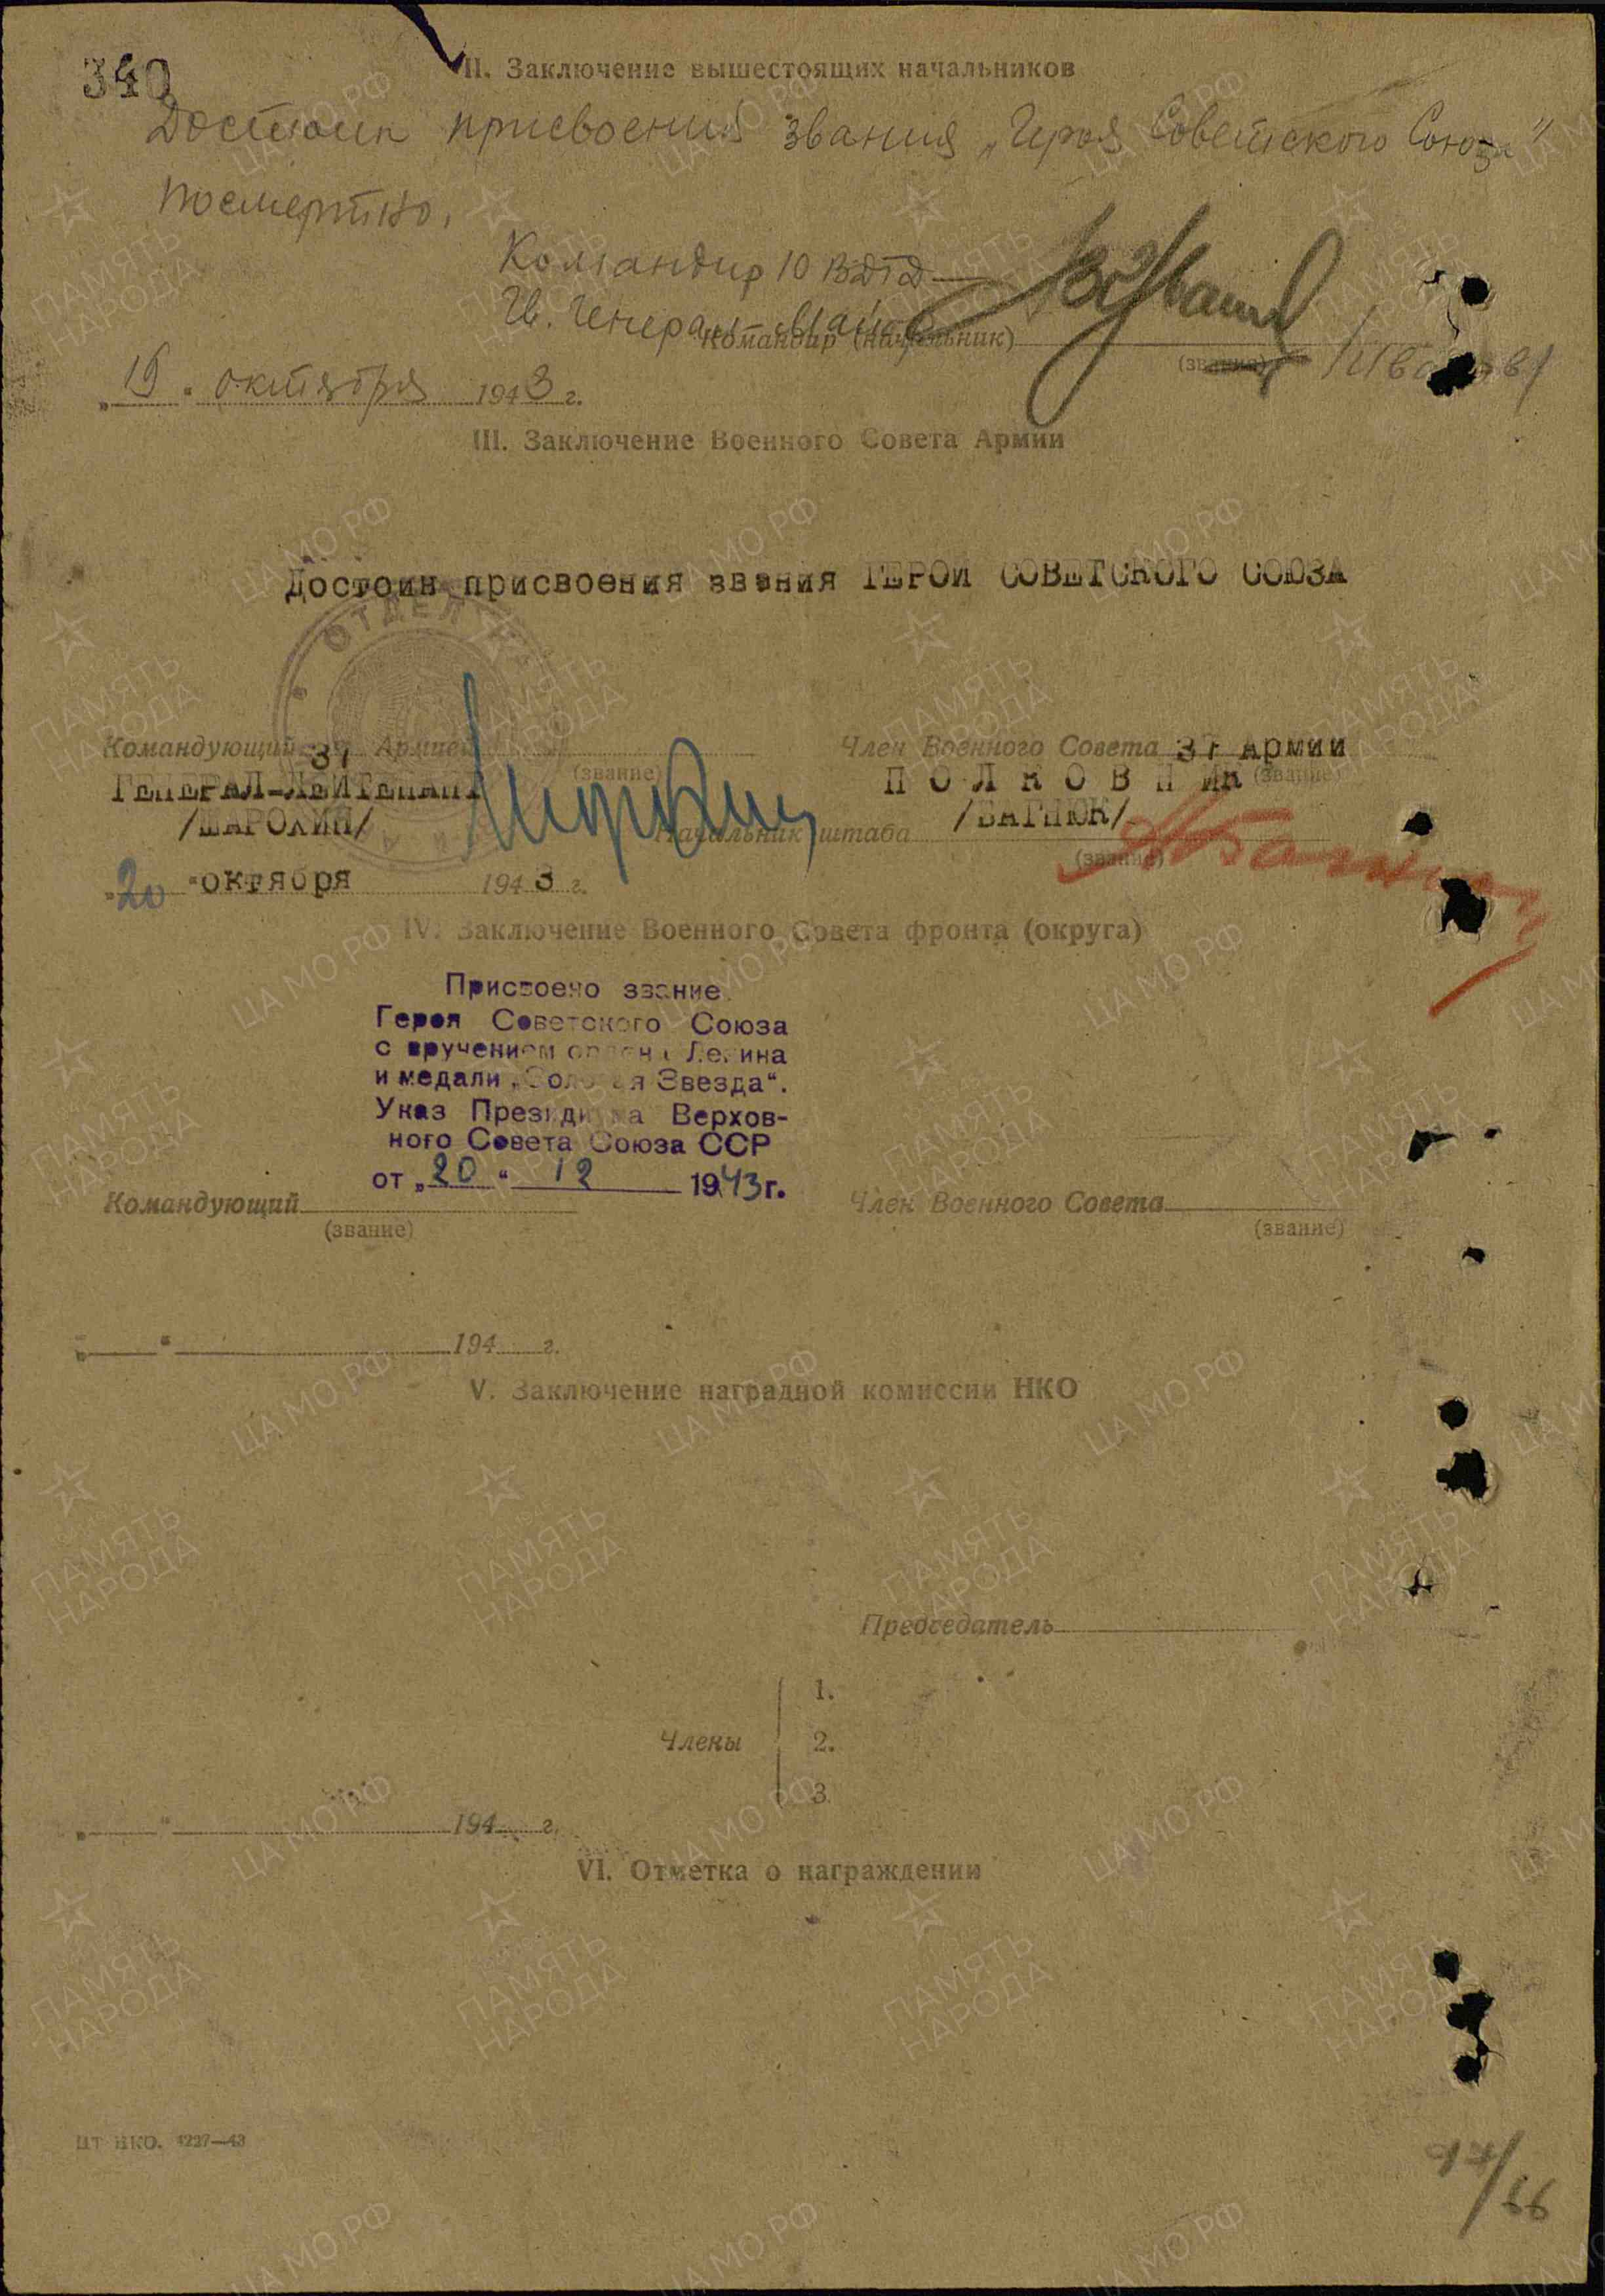 340
II. Заключение вышестоящих начальников
Достоин присвоения звания „Героя Советского Союза"
посмертно.
Командир 10 ВДД
Гв. Генерал-майор
Командир (начальник)
(звание)
/Иванов/
„19" октября 1943 г.
III. Заключение Военного Совета Армии
Достоин присвоения звания ГЕРОЙ СОВЕТСКОГО СОЮЗА
ОТДЕЛ
Командующий 37 Армией
(звание)
Член Военного Совета 37 Армии
(звание)
ГЕНЕРАЛ-ЛЕЙТЕНАНТ
П О Л К О В Н ИК
/ШАРОХИН/
Начальник штаба
/БАГНЮК/
(звание)
„20" октября 1943 г.
IV. Заключение Военного Совета фронта (округа)
Присвоено звание
Героя Советского Союза
с вручением ордена Ленина
и медали „Золотая Звезда“.
Указ Президиума Верхов-
ного Совета Союза ССР
от „20“ 12 1943 г.
Командующий
(звание)
Член Военного Совета
(звание)
„ “ 194 г.
V. Заключение наградной комиссии НКО
Председатель
Члены
1.
2.
3.
„ “ 194 г.
VI. Отметка о награждении
ЦТ НКО. 4227—43
ЦА МО РФ
ПАМЯТЬ
НАРОДА